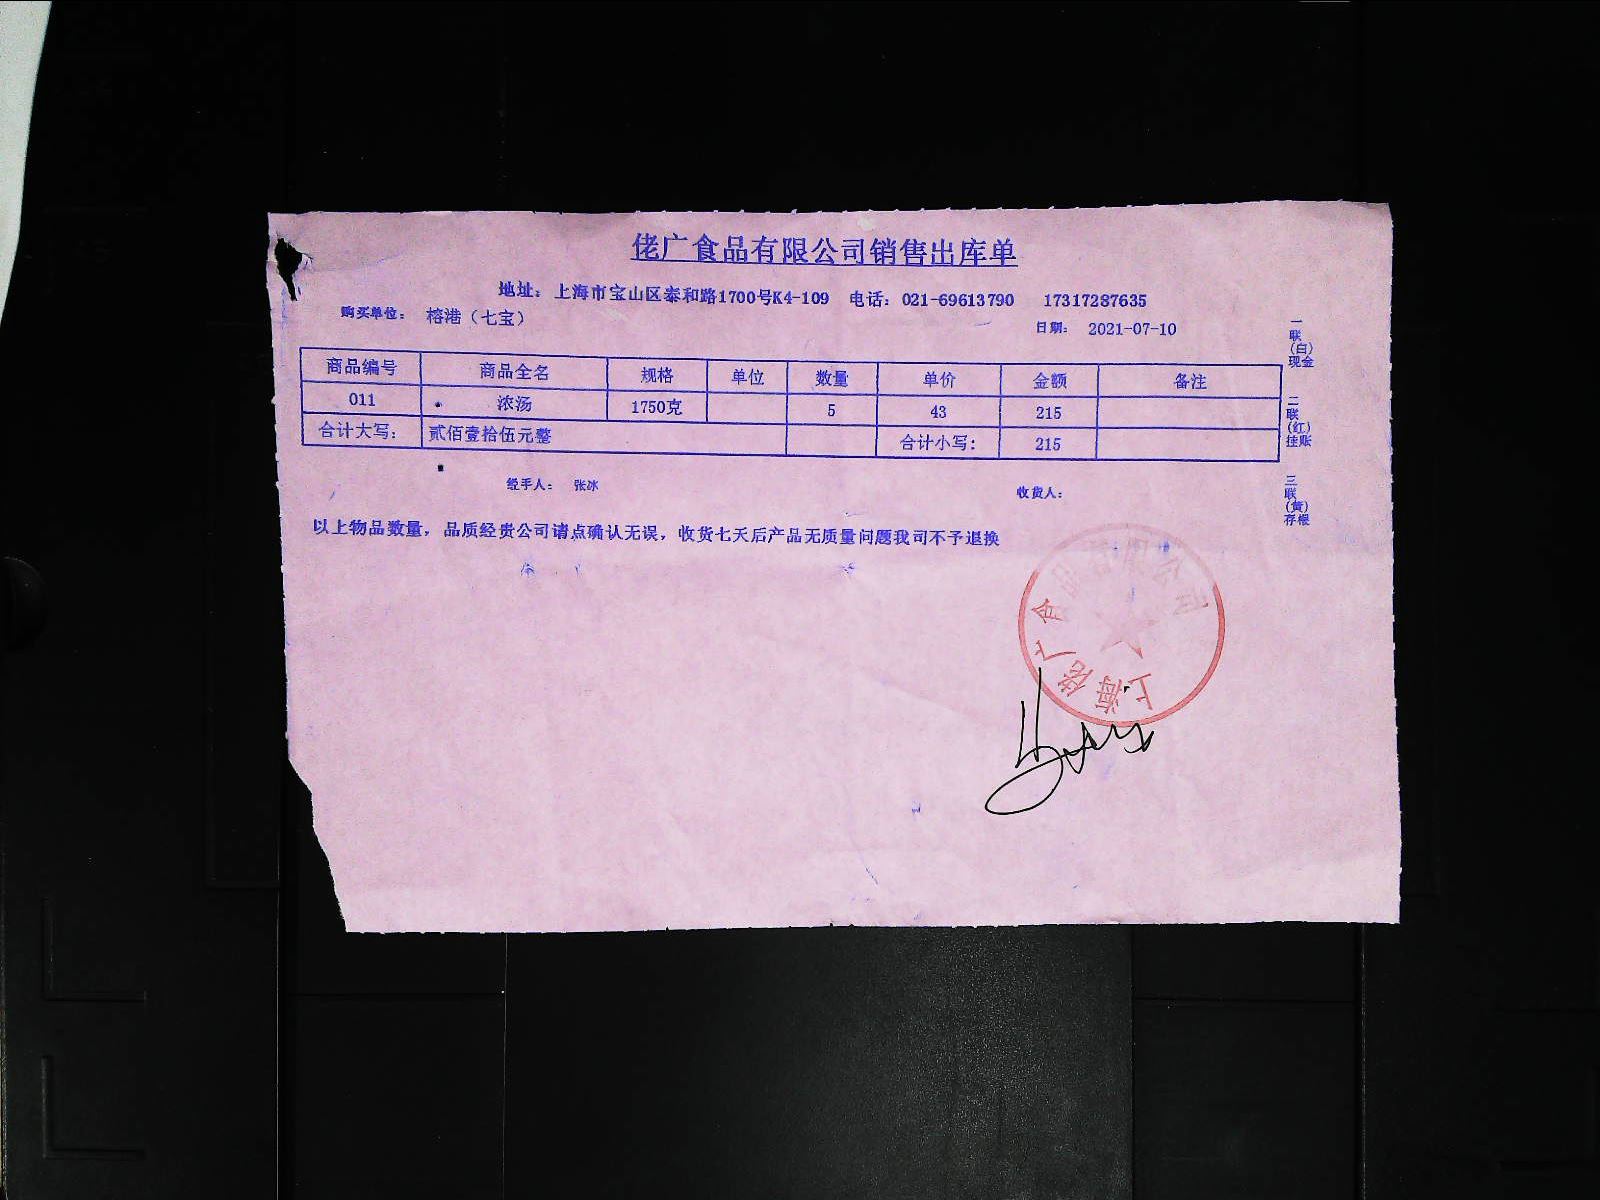 佬广食品有限公司销售出库单
地址：上海市宝山区泰和路1700号K4-109 电话：021-69613790 17317287635
购买单位： 榕港（七宝）
日期： 2021-07-10
商品编号 商品全名 规格 单位 数量 单价 金额 备注
011 浓汤 1750克 5 43 215
合计大写： 贰佰壹拾伍元整 合计小写： 215
经手人： 张冰 收货人：
以上物品数量，品质经贵公司请点确认无误，收货七天后产品无质量问题我司不予退换
一联(白)现金
二联(红)挂账
三联(黄)存根
上海佬广食品有限公司